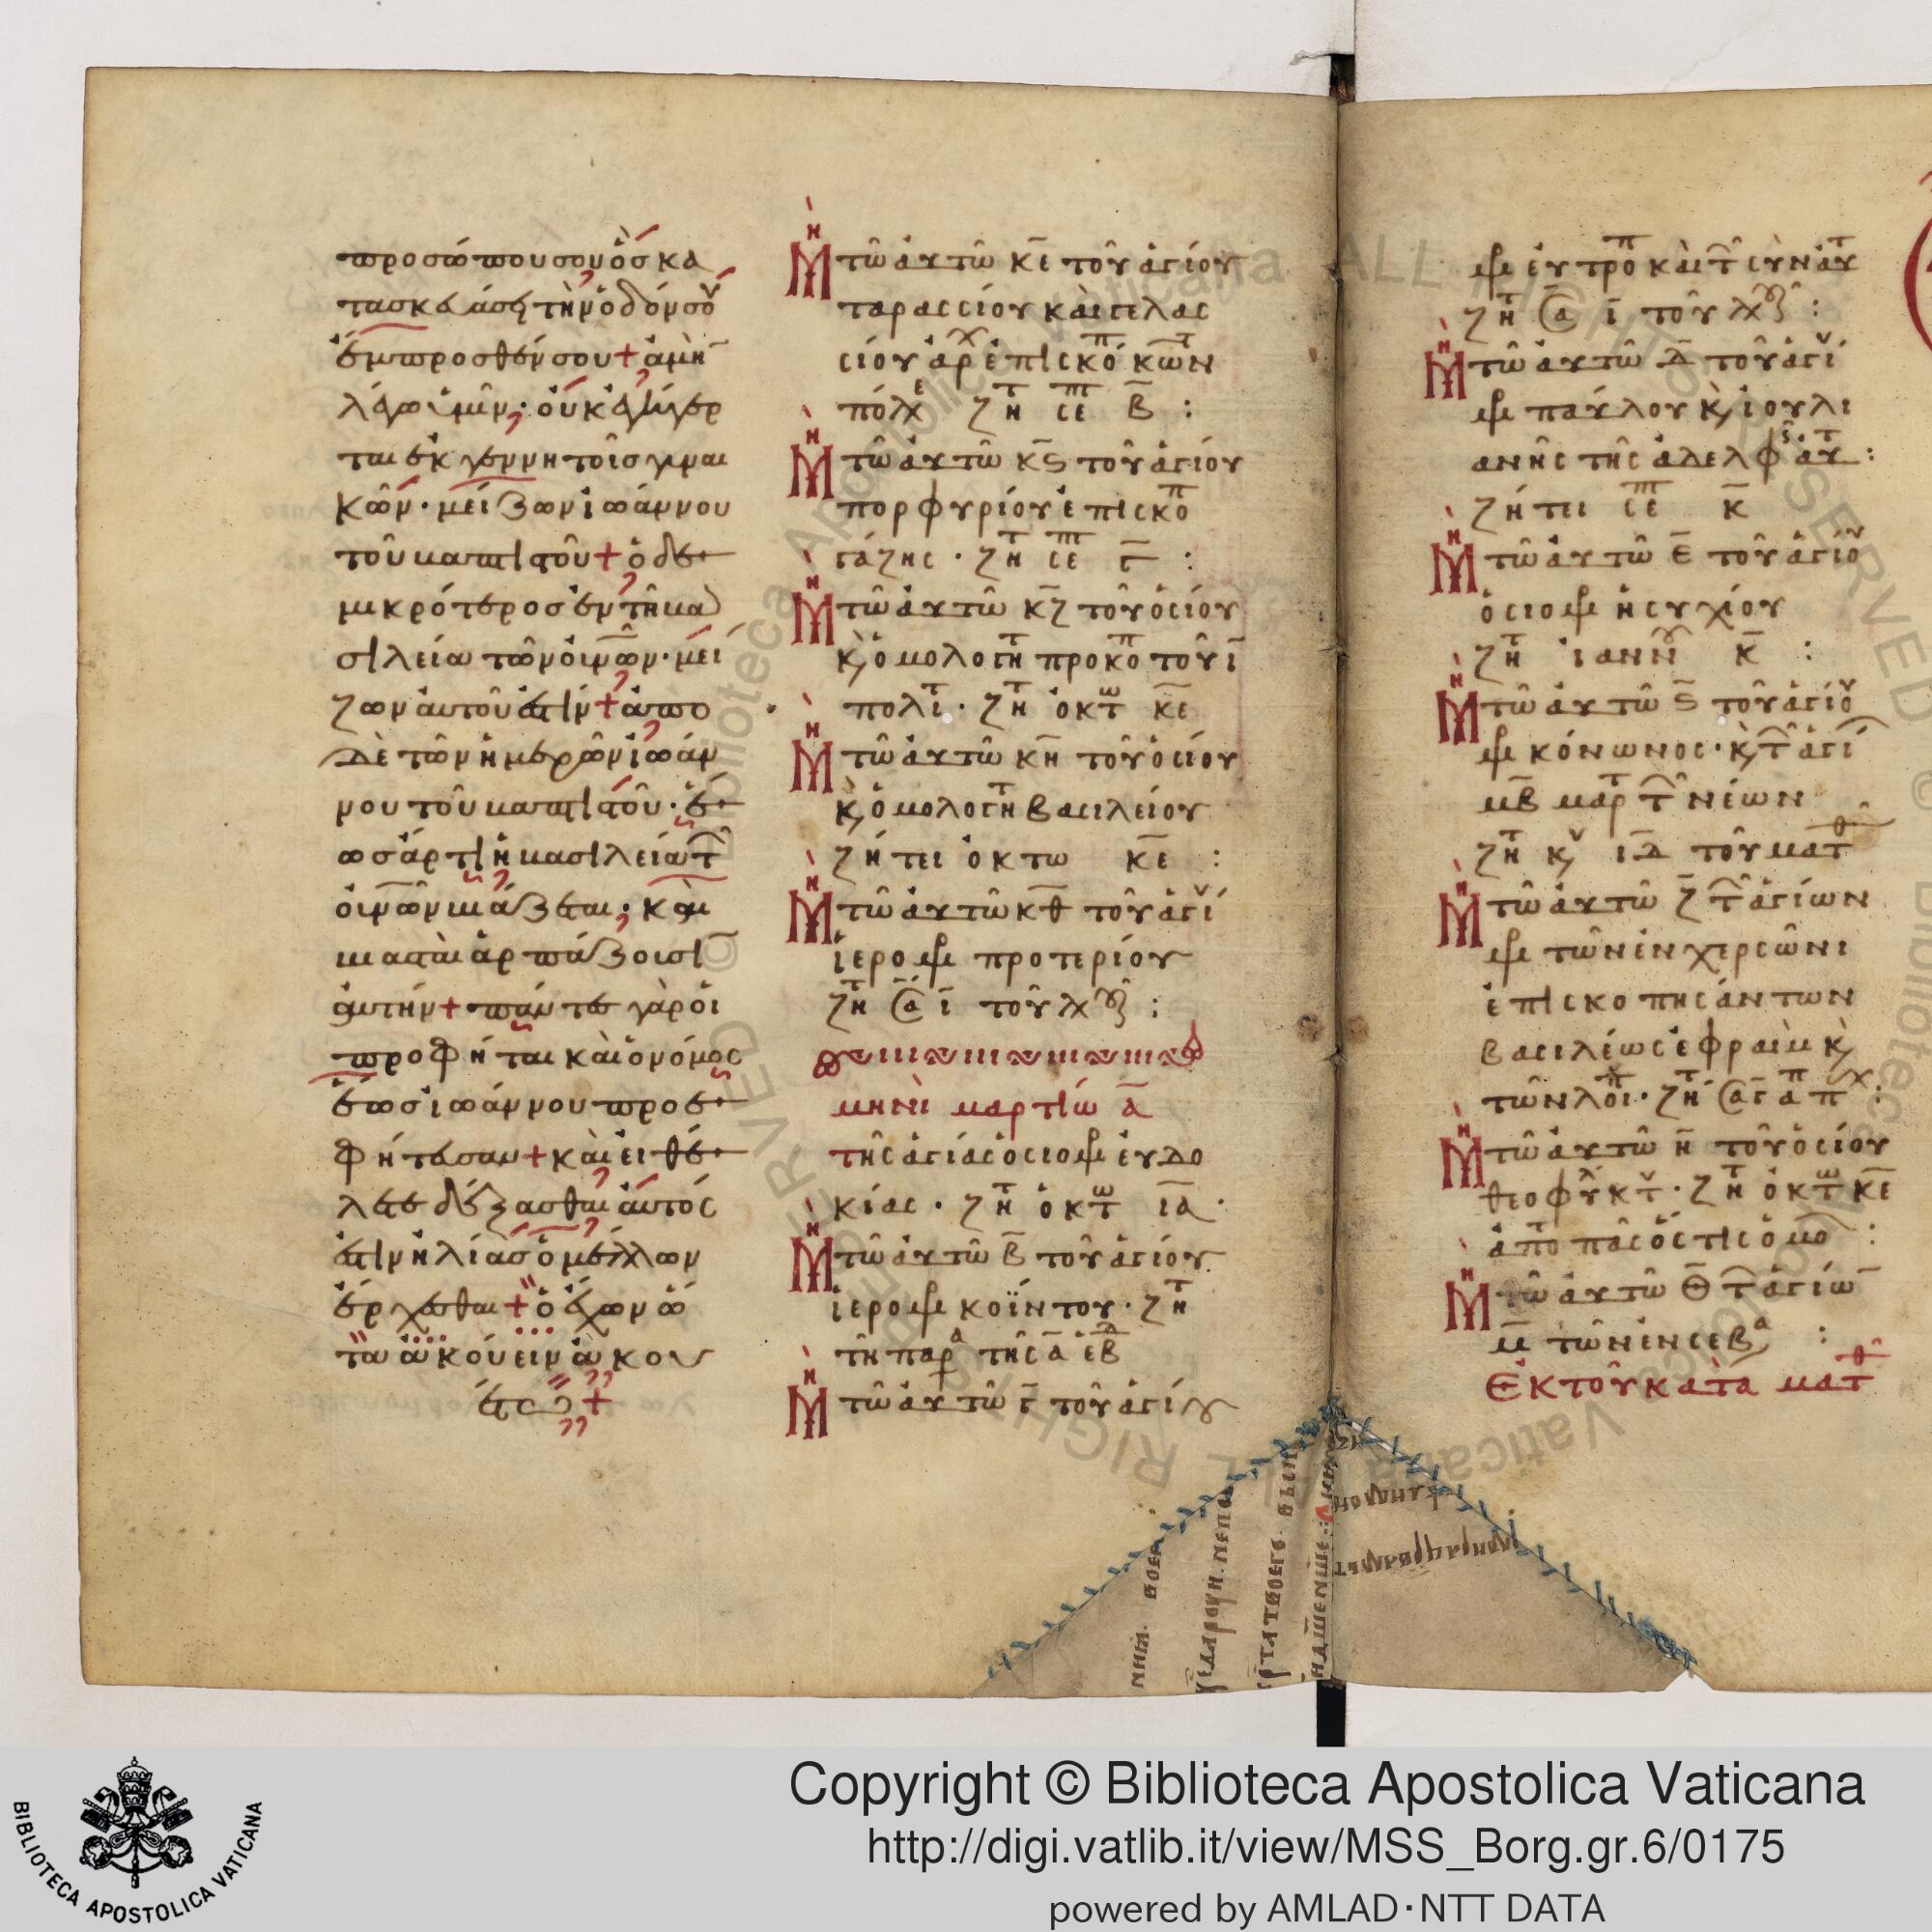 προσώπου σου ὃς κα
τασκευάση τὴν ὁδόν σου
ἔμπροσθέν σου + ἀμὴν
λέγω ὑμῖν· οὐκ ἐγήγερ
ται ἐκ γεννητοῖς γυναι
κῶν· μείζων ἰωάννου
τοῦ βαπτιστοῦ + ὁ δὲ
μικρότερος ἐν τῆ βα
σιλεία τῶν οὐνῶν· μεί
ζων αὐτοῦ ἐστίν + ἀπὸ
δὲ τῶν ἡμερῶν ἰωάν
νου τοῦ βαπτιστοῦ· ἕ
ως ἄρτι ἡ βασιλεία τ
οὐνῶν βιάζεται· καὶ
βιασταὶ ἁρπάζουσιν
αὐτήν + πάντες γὰρ οἱ
προφῆται καὶ ὁ νόμος
ἕως ἰωάννου προε
φήτευσαν + καὶ εἰ θέ
λετε δέξασθαι αὐτός
ἐστιν ἠλίας ὁ μέλλων
ἔρχεσθαι + ὁ ἔχων ὦ
τα ἀκούειν ἀκου
έτω +
Μη τῶ αὐτῶ κε τοῦ ἁγίου
ταρασσίου καὶ γελας
σίου ἀρχ ἐπισκόπ κωντ
πόλε ζητ σεπτ β :
Μη τῶ αὐτῶ κς τοῦ ἁγίου
πορφυρίου ἐπισκοπ
γάζης · ζητ σεπτ γ :
Μη τῶ αὐτῶ κζ τοῦ ὁσίου
κ ὁμολογητ προκοπ τοῦ ι
πολιτ · ζητ ὀκτω κε
Μη τῶ αὐτῶ κη τοῦ ὁσίου
κ ὁμολογητ βασιλείου
ζήτει ὀκτω κε :
Μη τῶ αὐτῶ κθ τοῦ ἁγίου
ἱερομρ προτερίου
ζητ σα ι τοῦ λου :
μηνὶ μαρτίω α
τῆς ἁγίας ὁσιομρ εὐδο
κίας · ζητ ὀκτω ια ·
Μη τῶ αὐτῶ β τοῦ ἁγίου
ἱερομρ κοΐντου · ζητ
τῆ παρα τῆς α ἑβδ
Μη τῶ αὐτῶ γ τοῦ ἁγίου
μρ εὐτροπ καὶ τ σὺν αὐτ
ζητ σα ι τοῦ λου :
Μη τῶ αὐτῶ δ τοῦ ἁγίου
μρ παύλου κ ἰουλι
ανῆς τῆς ἀδελφῆς αὐτ :
ζήτει σεπτ κ
Μη τῶ αὐτῶ ε τοῦ ἁγίου
ὁσιομρ ἡσυχίου
ζητ ἰανν κ :
Μη τῶ αὐτῶ ς τοῦ ἁγίου
μρ κόνωνος· κ τ ἁγί
μβ μαρτ τ νέων
ζητ κυ ιδ τοῦ ματθ
Μη τῶ αὐτῶ ζ τ ἁγίων
μρ τῶν ἐν χερσῶνι
ἐπισκοπησάντων
βασιλέως ἐφραὶμ κ
τῶν λοιπ · ζητ σα γ ἀπ :
Μη τῶ αὐτῶ η τοῦ ὁσίου
θεοφυλκτ · ζητ ὀκτω κε
Μη τῶ αὐτῶ θ τ ἁγίων
μ τῶν ἐν σεβα :
ἐκ τοῦ κατὰ ματθ
Copyright © Biblioteca Apostolica Vaticana
http://digi.vatlib.it/view/MSS_Borg.gr.6/0175
powered by AMLAD·NTT DATA
BIBLIOTECA APOSTOLICA VATICANA